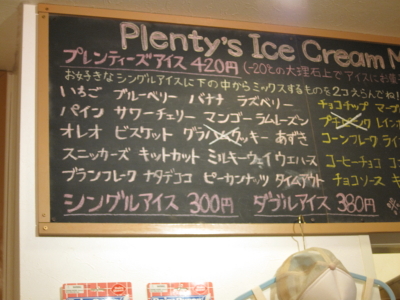 Plenty's Ice Cream M
プレンティーズアイス 420円 (-20℃の大理石上でアイスにお
お好きなシングルアイスに下の中からミックスするものを2コえらんでね!
いちご ブルーベリー バナナ ラズベリー チョコチップ マーブ
パイン サワーチェリー マンゴー ラムレーズン レインボ
オレオ ビスケット グラハムクッキー あずき コーンフレーク ライ
スニッカーズ キットカット ミルキーウェイ ウエハース コーヒーチョコ コ
ブランフレーク ナタデココ ピーカンナッツ タイムアウト チョコソース キ
シングルアイス 300円 ダブルアイス 380円